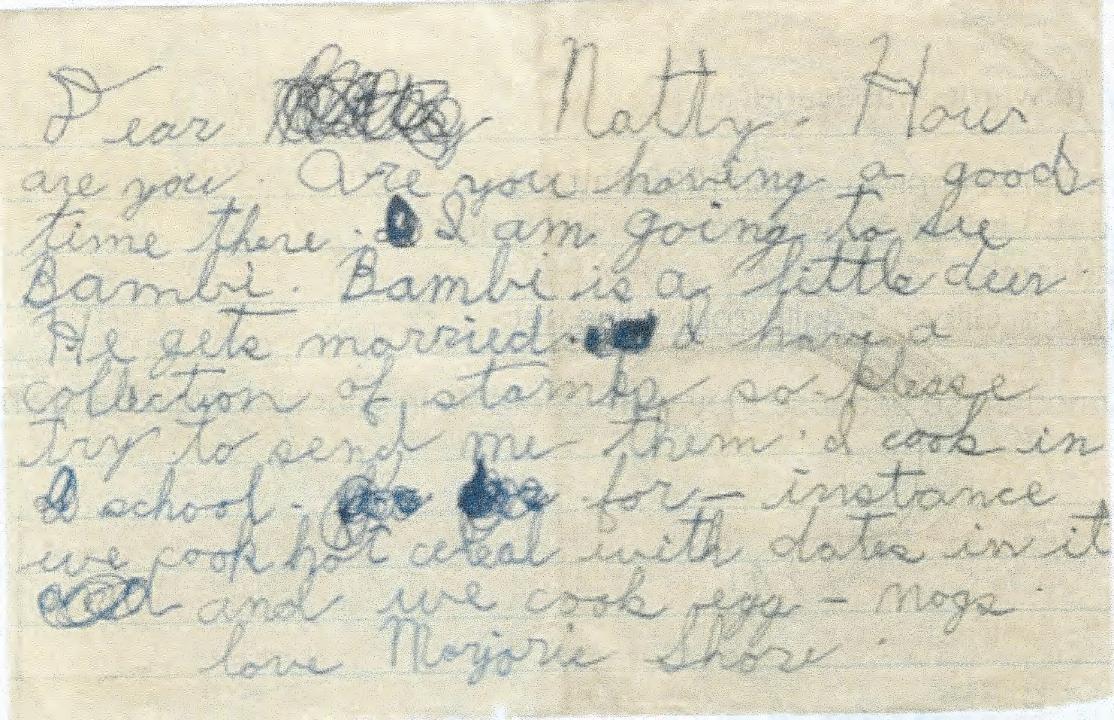 Dear Natty. How
are you. Are you having a good
time there. I am going to see
Bambi. Bambi is a little deer.
He gets married. I have a
collection of stamps so please
try to send me them. I cook in
school. for-instance
we cook hot cereal with dates in it
and we cook egg-nogs.
love Marjorie Shore.